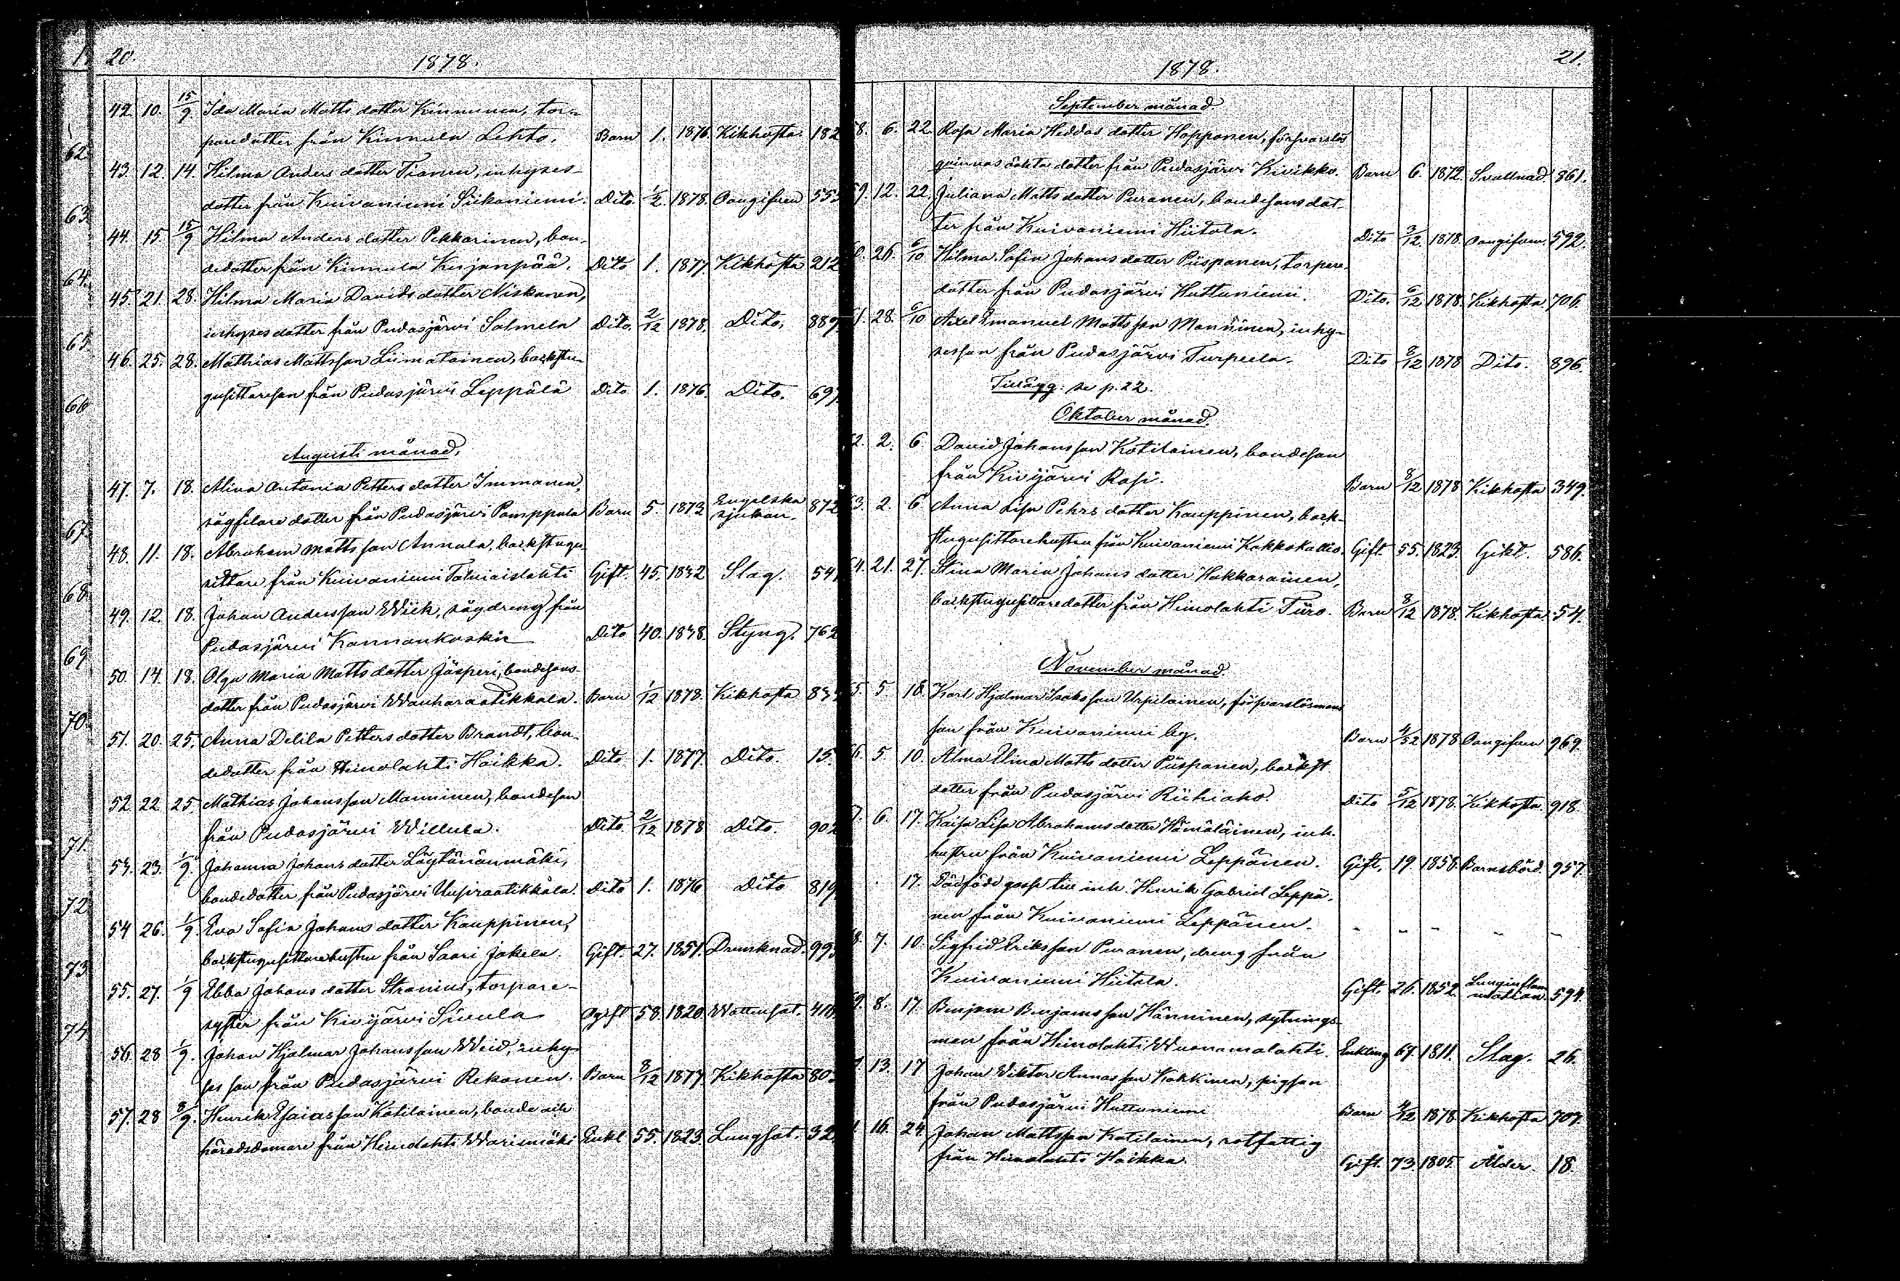 20.
1878.
42. 10. 15/9 Ida Maria Matts dotter Kinnunen, tor-
paredotter från Kinnula Lehto. Barn 1. 1876. Kikhosta. 182
43. 12. 14. Hilma Anders dotter Tianen, inhyses-
dotter från Kuivaniemi Siikaniemi. Dito. 1/2. 1878. Oangifven 553
44. 15 15/9 Hilma Anders dotter Pekkarinen, bon-
dedotter från Kinnula Kurjenpää. Dito 1. 1877 Kikhosta 212
45. 21. 28. Hilma Maria Davids dotter Niskanen,
inhyses dotter från Pudasjärvi Salmela Dito. 2/12 1878. Dito. 889
46. 25. 28. Mathias Mattsson Liimatainen, backstu-
gusittareson från Pudasjärvi Leppälä Dito 1. 1876. Dito. 697
Augusti månad.
47. 7. 18. Alina Antonia Petters dotter Immonen,
sågfilare dotter från Pudasjärvi Pamppula Barn 5 1873 Engelska sjukan. 872
48. 11. 18. Abraham Mattsson Annala, backstugu-
sittare från Kuivaniemi Gift. 45. 1832 Slag. 541
49. 12. 18. Johan Andersson Wiik, sågdreng från
Pudasjärvi Kannonkoski Dito 40. 1838. Styng. 762
50. 14. 18. Olga Maria Matts dotter Jäsperi, bondesons-
dotter från Pudasjärvi Wanharaatikkala. Barn 1/12 1878. Kikhosta 83
51. 20. 25. Anna Delila Petters dotter Brandt, bon-
dedotter från Heinolahti Hoikka. Dito. 1. 1877. Dito. 15.
52. 22. 25. Mathias Johansson Manninen, bondeson
från Pudasjärvi Willula. Dito. 2/12 1878 Dito. 902
53. 23. 1/9. Johanna Johans dotter Löytänänmäki,
bondedotter från Pudasjärvi Uusiraatikkala. Dito 1. 1876 Dito 819
54 26. 1/9. Eva Sofia Johans dotter Kauppinen,
backstugusittarehustru från Saari Jokela. Gift. 27. 1851. Drunknad. 993
55. 27. 1/9 Ebba Johans dotter Stranius, torpare-
syster från Kivijärvi Sivula Ogift 58. 1820. Wattensot. 410
56. 28 1/9. Johan Hjalmar Johansson Weid, inhy-
ses son från Pudasjärvi Rekonen. Barn 8/12 1877 Kikhosta 80
57. 28 8/9. Henrik Esaiasson Kotilainen, bonde och
häradsdomare från Heinolahti Warismäki Enkl 55. 1823. Lungsot. 32
62
63.
64.
65.
66
67.
68
69
70.
71.
72
73
74
21.
1878.
September månad.
58. 6. 22. Rosa Maria Heddas dotter Hopponen, försvarslös
qvinnas oäkta dotter från Pudasjärvi Kivikko. Barn 6. 1872. Svullnad. 861.
59. 12. 22. Juliana Matts dotter Puranen, bondesons dot-
ter från Kuivaniemi Hiitola. Dito 3/12. 1878. Oangifven. 592.
60. 26. 6/10 Hilma Sofia Johans dotter Piispanen, torpare-
dotter från Pudasjärvi Huttuniemi. Dito. 6/12 1878. Kikhosta. 706.
61. 28. 6/10 Axel Emanuel Mattsson Manninen, inhy-
sesson från Pudasjärvi Turpeela. Dito 8/12 1878 Dito. 896.
Tillägg. se p. 22.
Oktober månad.
62. 2. 6. David Johansson Kotilainen, bondeson
från Kivijärvi Rasi. Barn 8/12 1878 Kikhosta 349.
63. 2. 6 Anna Lisa Pehrs dotter Kauppinen, back-
stugusittarehustru från Kuivaniemi Kokkokallio. Gift 55. 1823. Gikt. 586.
64. 21. 27. Stina Maria Johans dotter Hakkarainen,
backstugusittaredotter från Heinolahti Türo. Barn 8/12 1878. Kikhosta. 54.
November månad.
65. 5. 10. Karl Hjalmar Isaksson Urpilainen, försvarslösmans
son från Kuivaniemi by. Barn 4/52 1878 Oangifven 969.
66. 5. 10. Alma Elina Matts dotter Piispanen, backst.
dotter från Pudasjärvi Riihiaho. Dito 5/12 1878. Kikhosta. 918.
67. 6. 17. Kaisa Lisa Abrahams dotter Hämäläinen, inh.
hustru från Kuivaniemi Leppänen. Gift. 19. 1858. Barnsbörd. 957.
17. Dödfödt gosse till inh. Henrik Gabriel Leppä-
nen från Kuivaniemi Leppänen.
68. 7. 10. Sigfrid Eriksson Puranen, dreng från
Kuivaniemi Hiitola. Gift. 26. 1852. Lunginflam- mation. 594.
69. 8. 17. Benjam Benjamsson Hänninen, sytnings-
man från Heinolahti Wuonamolahti. Enkling 67. 1811. Slag. 26.
13. 17 Johan Wiktor Annasson Kokkinen, pigson
från Pudasjärvi Huttuniemi Barn 4/12 1878 Kikhosta 707.
16. 24. Johan Mattsson Kotilainen, rotfattig
från Heinolahti Hoikka. Gift. 73. 1805. Ålder 18.